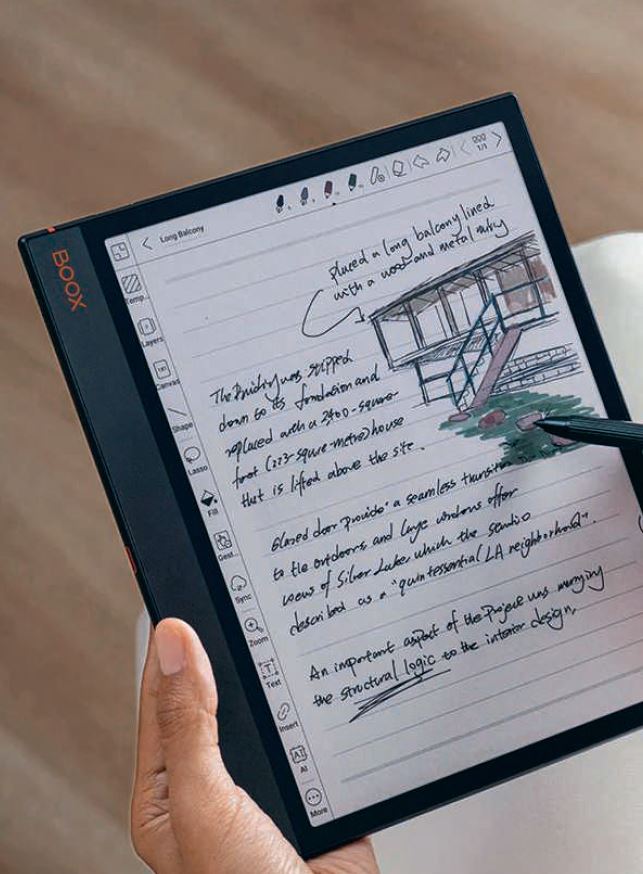 BOOX
Long Balcony
1/1
Temp...
Layers
Canvas
Shape
Lasso
Fill
Gest...
Sync
Zoom
Text
Insert
AI
More
placed a long balcony lined
with a wood and metal
The was stripped
down to its fondation and
replaced with a 2400-square-
foot (223-squre-metre) house
that is lifted above the site.
Glazed door "provide" a seamless
to the outdoors and large windows offer
views of Silver Lake which the studio
described as a "quintessential LA neighborhood".
An important aspect of the Project was marrying
the structural logic to the interior design,